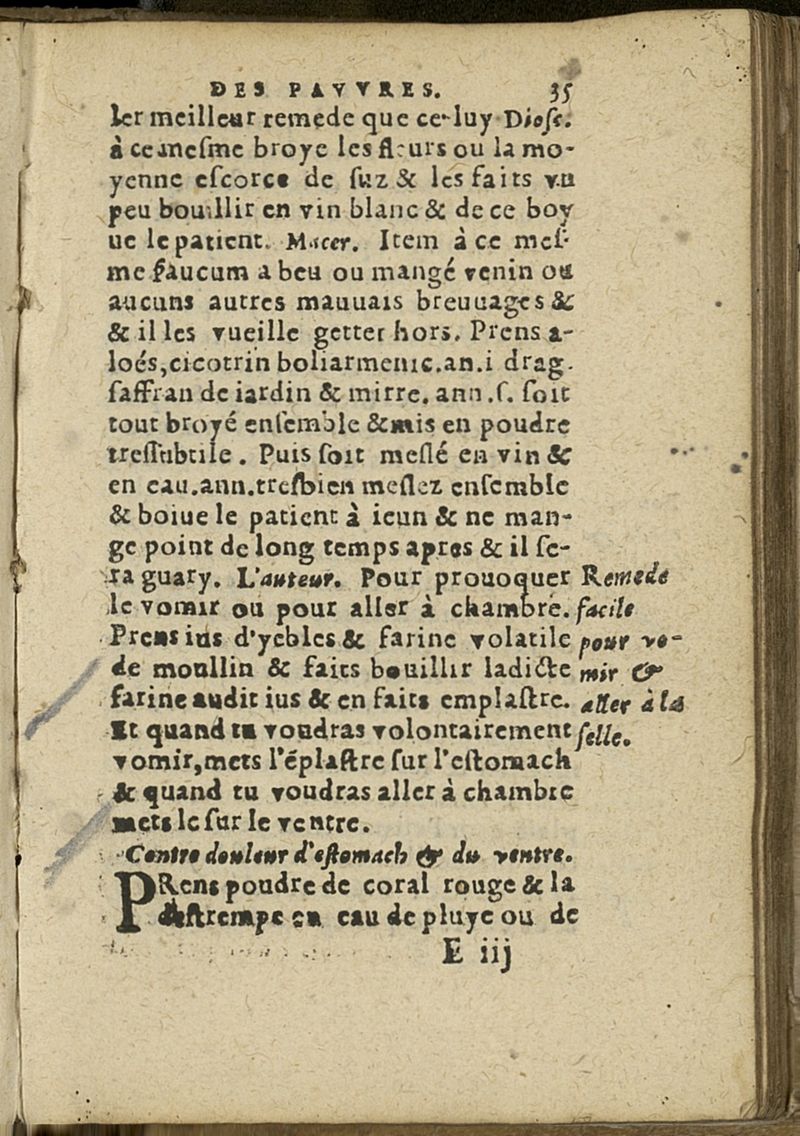 DES PAVVRES. 35
ler meilleur remede que ce-luy Diosc.
à ce mesme broye les fleurs ou la mo-
yenne escorce de suz & les faits vn
peu bouillir en vin blanc & de ce boy
ue le patient. Macer. Item à ce mes-
me saucum a beu ou mangé venin ou
aucuns autres mauuais breuuages &
& il les vueille getter hors. Prens a-
loés, cicotrin boliarmenic. an. i drag.
saffran de iardin & mirre. ann .s. soit
tout broyé ensemble & mis en poudre
tressubtile. Puis soit meslé en vin &
en eau. ann. tresbien meslez ensemble
& boiue le patient à ieun & ne man-
ge point de long temps apres & il se-
ra guary. L'auteur. Pour prouoquer
le vomir ou pour aller à chambre.
Prens ius d'yebles & farine volatile
de moullin & faits bouillir ladicte
farine audit ius & en faits emplastre.
Et quand tu voudras volontairement
vomir, mets l'éplastre sur l'estomach
& quand tu voudras aller à chambre
mets le sur le ventre.
Remede
facile
pour vo-
mir &
aller à la
selle.
Contre douleur d'estomach & du ventre.
PRens poudre de coral rouge & la
destrempe en eau de pluye ou de
E iij